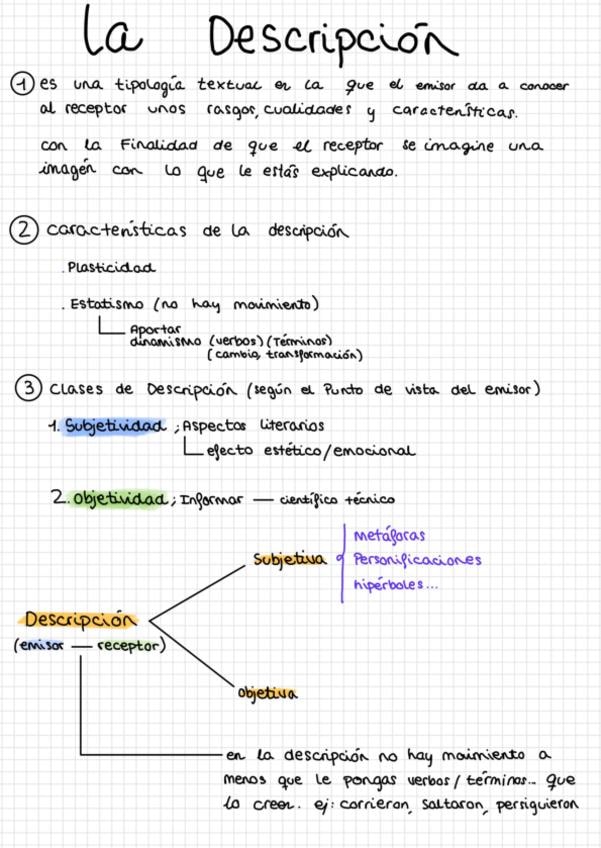 La Descripción
① es una tipología textual en la que el emisor da a conocer
al receptor unos rasgos, cualidades y características.
con la Finalidad de que el receptor se imagine una
imagén con lo que le estás explicando.
② características de la descripción
. Plasticidad
. Estatismo (no hay movimiento)
Aportar
dinamismo (verbos) (términos)
(cambio, transformación)
③ Clases de Descripción (según el Punto de vista del emisor)
1. Subjetividad ; Aspectos literarios
efecto estético/emocional
2. objetividad ; Informar — científico técnico
metáforas
Subjetiva
Personificaciones
hipérboles...
Descripción
(emisor — receptor)
objetiva
en la descripción no hay moimiento a
menos que le pongas verbos / términos... que
lo creen. ej: corrieron, saltaron, persiguieron